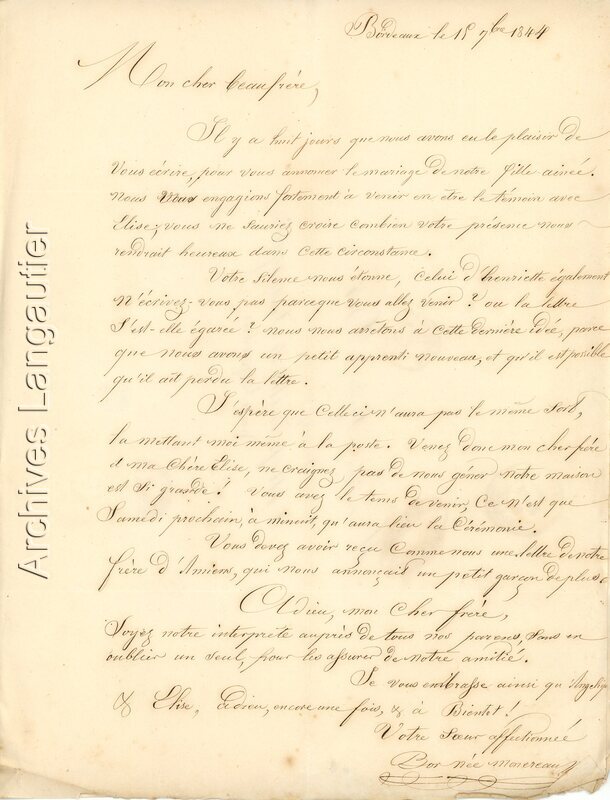 Bordeaux le 15 7bre 1844
Mon cher beaufrére,
Il y a huit jours que nous avons eu le plaisir de
Vous écrire, pour vous annoncer le mariage de notre fille ainée.
Nous vous engagions fortement à venir en etre le témoin avec
Elise; vous ne sauriez croire combien votre présence nous
rendrait heureux dans cette circonstance.
Votre silence nous étonne, celui d'henriette également
N'écrivez-vous pas parceque vous allez venir ? ou la lettre
s'est-elle égarée ? nous nous arrêtons à cette dernière idée, parce
que nous avons un petit apprenti nouveau, et qu'il est possible
qu'il ait perdu la lettre.
J'espère que celle ci n'aura pas le même sort,
la mettant moi même à la poste. Venez donc mon cher frére
et ma chère Elise, ne craignez pas de nous géner notre maison
est si grande ! Vous avez le tems de venir, ce n'est que
Samedi prochain, à minuit, qu'aura lieu la Cérémonie.
Vous devez avoir reçu comme nous une lettre de notre
frère d'Amiens, qui nous annonçait un petit garçon de plus.
Adieu, mon cher frére,
Soyez notre interprète auprès de tous nos parens, sans en
oublier un seul, pour les assurer de notre amitié.
Je vous embrasse ainsi qu'Angeliq
& Elise, Adieu, encore une fois, & à Bientot !
Votre Sœur affectionnée
Bor Née Monereau
Archives Langautier